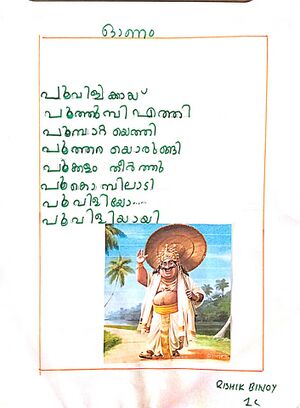 ഓണം
പൂവിളിക്കായ്
പൂത്തുമ്പി എത്തി
പൂമ്പാറ്റ യെത്തി
പൂത്തറ യൊരുങ്ങി
പൂക്കളം തീർത്തു
പൂകൊമ്പിലാടി
പൂവിളിയോ.....
പൂവിളിയായി
RISHIK BINOY
1C